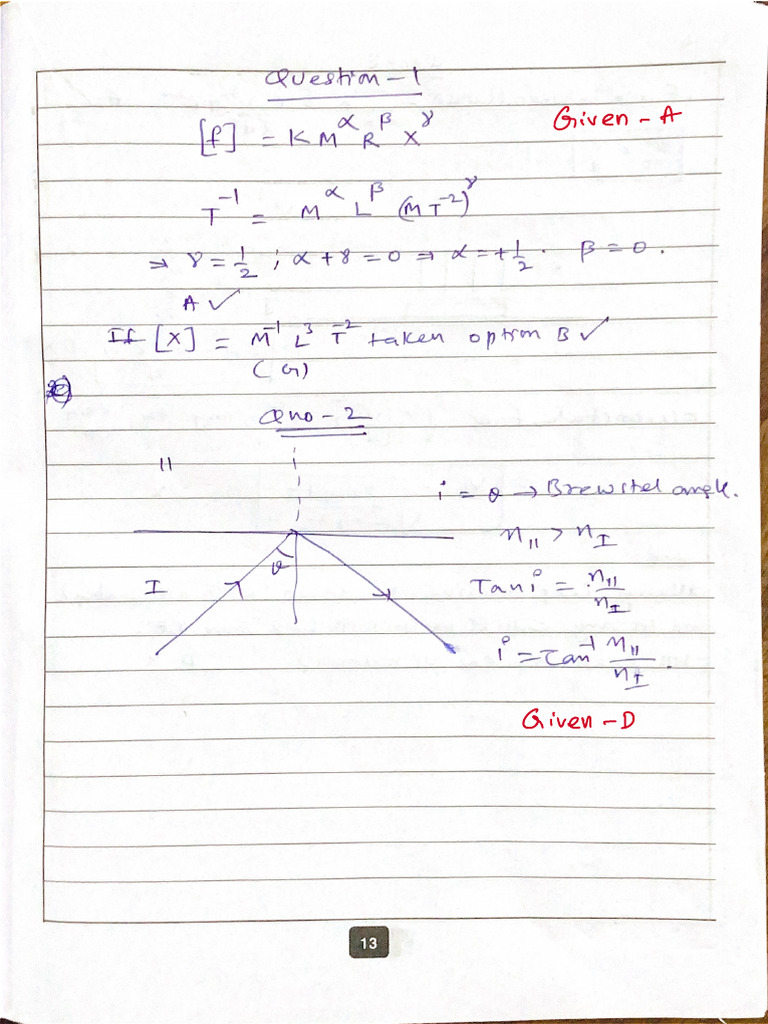 Question-1
Given-A
[f] = K M^α R^β X^γ
T^-1 = M^α L^β (MT^-2)^γ
⇒ γ = 1/2 ; α + γ = 0 ⇒ α = +1/2 . β = 0 .
A ✓
If [X] = M^-1 L^3 T^-2 taken option B ✓
(G)
Qno-2
II
i = θ → Brewster angle.
n_II > n_I
θ
I
Tan i = n_II/n_I
i = Tan^-1 n_II/n_I .
Given-D
13